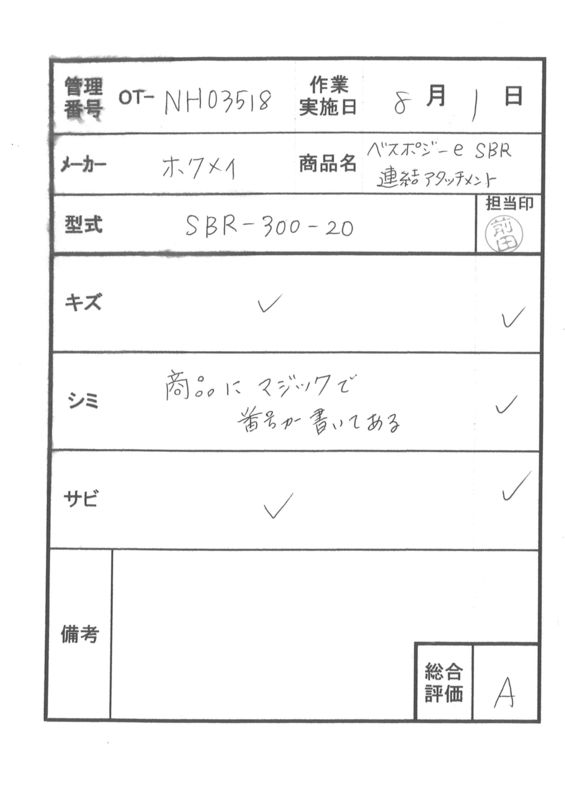 管理番号 OT- NH03518 作業実施日 8月1日
メーカー ホクメイ 商品名 ベスポジーe SBR
連結アタッチメント
型式 SBR-300-20 担当印
前田
キズ ✓ ✓
シミ 商品に マジックで ✓
番号が書いてある
サビ ✓ ✓
備考
総合評価 A